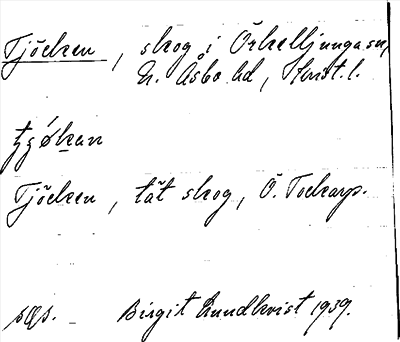 Tjöcken, skog i Örkelljunga sn,
N. Åsbo hd, Krist. l.
Tjöcken, tät skog, Ö. Tockarp.
Birgit Lundkvist 1939.